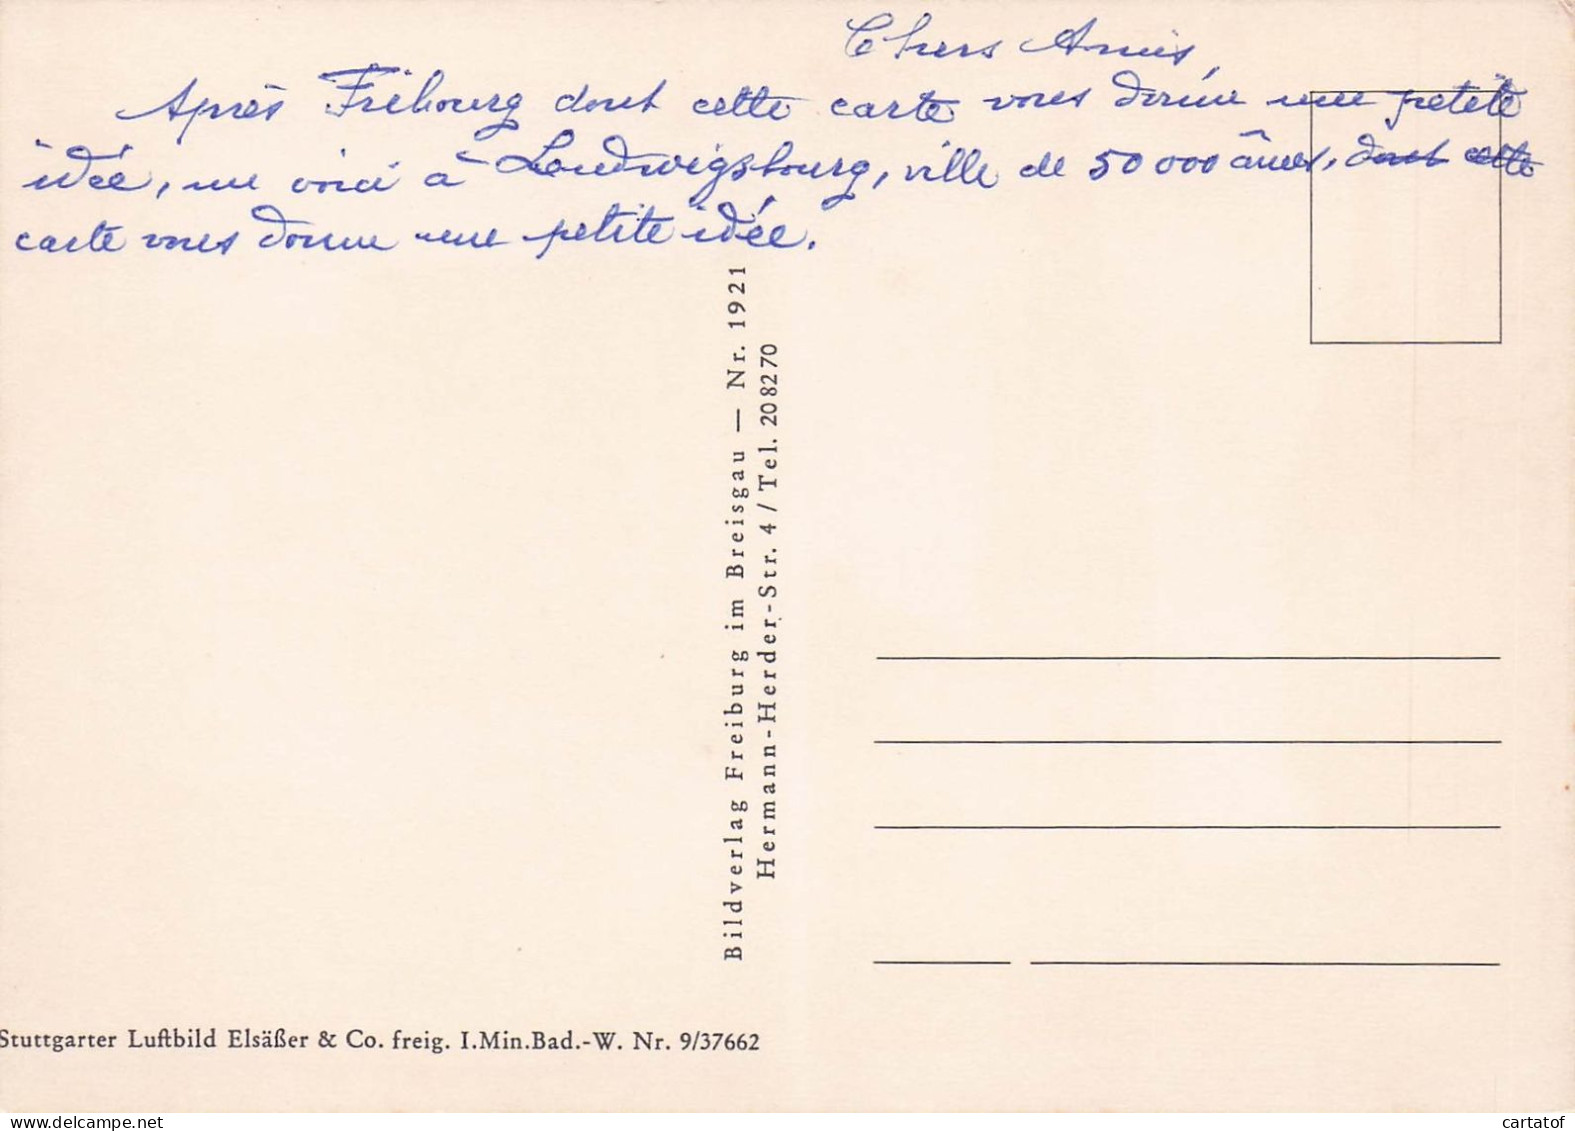 Chers Amis,
Après Fribourg dont cette carte vous donne une petite
idée, me voici à Loudwigsbourg, ville de 50 000 âmes, dont cette
carte vous donne une petite idée.
Bildverlag Freiburg im Breisgau — Nr. 1921
Hermann-Herder-Str. 4 / Tel. 208270
Stuttgarter Luftbild Elsäßer & Co. freig. I.Min.Bad.-W. Nr. 9/37662
cartatof